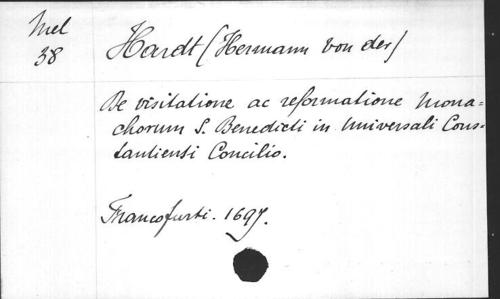 Mel
38
Hardt (Hermann von der)
De visitatione ac reformatione Mona=
chorum S. Benedicti in Universali Cons=
tantiensi Concilio.
Francofurti. 1697.